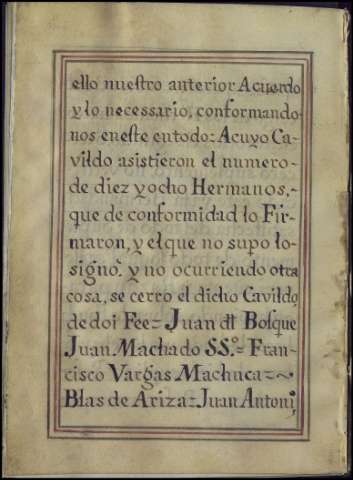 ello nuestro anterior Acuerdo
y lo necessario, conformando-
nos eneste entodo: Acuyo Ca-
vildo asistieron el numero-
de diez yocho Hermanos,-
que de conformidad lo Fir-
maron, y elque no supo lo-
signo. y no ocurriendo otra
cosa, se cerro el dicho Cavildo,
de doi Fee= Juan dl Bosque
Juan Machado SSo.= Fran-
cisco Vargas Machuca=~
Blas de Ariza= Juan Antoni,